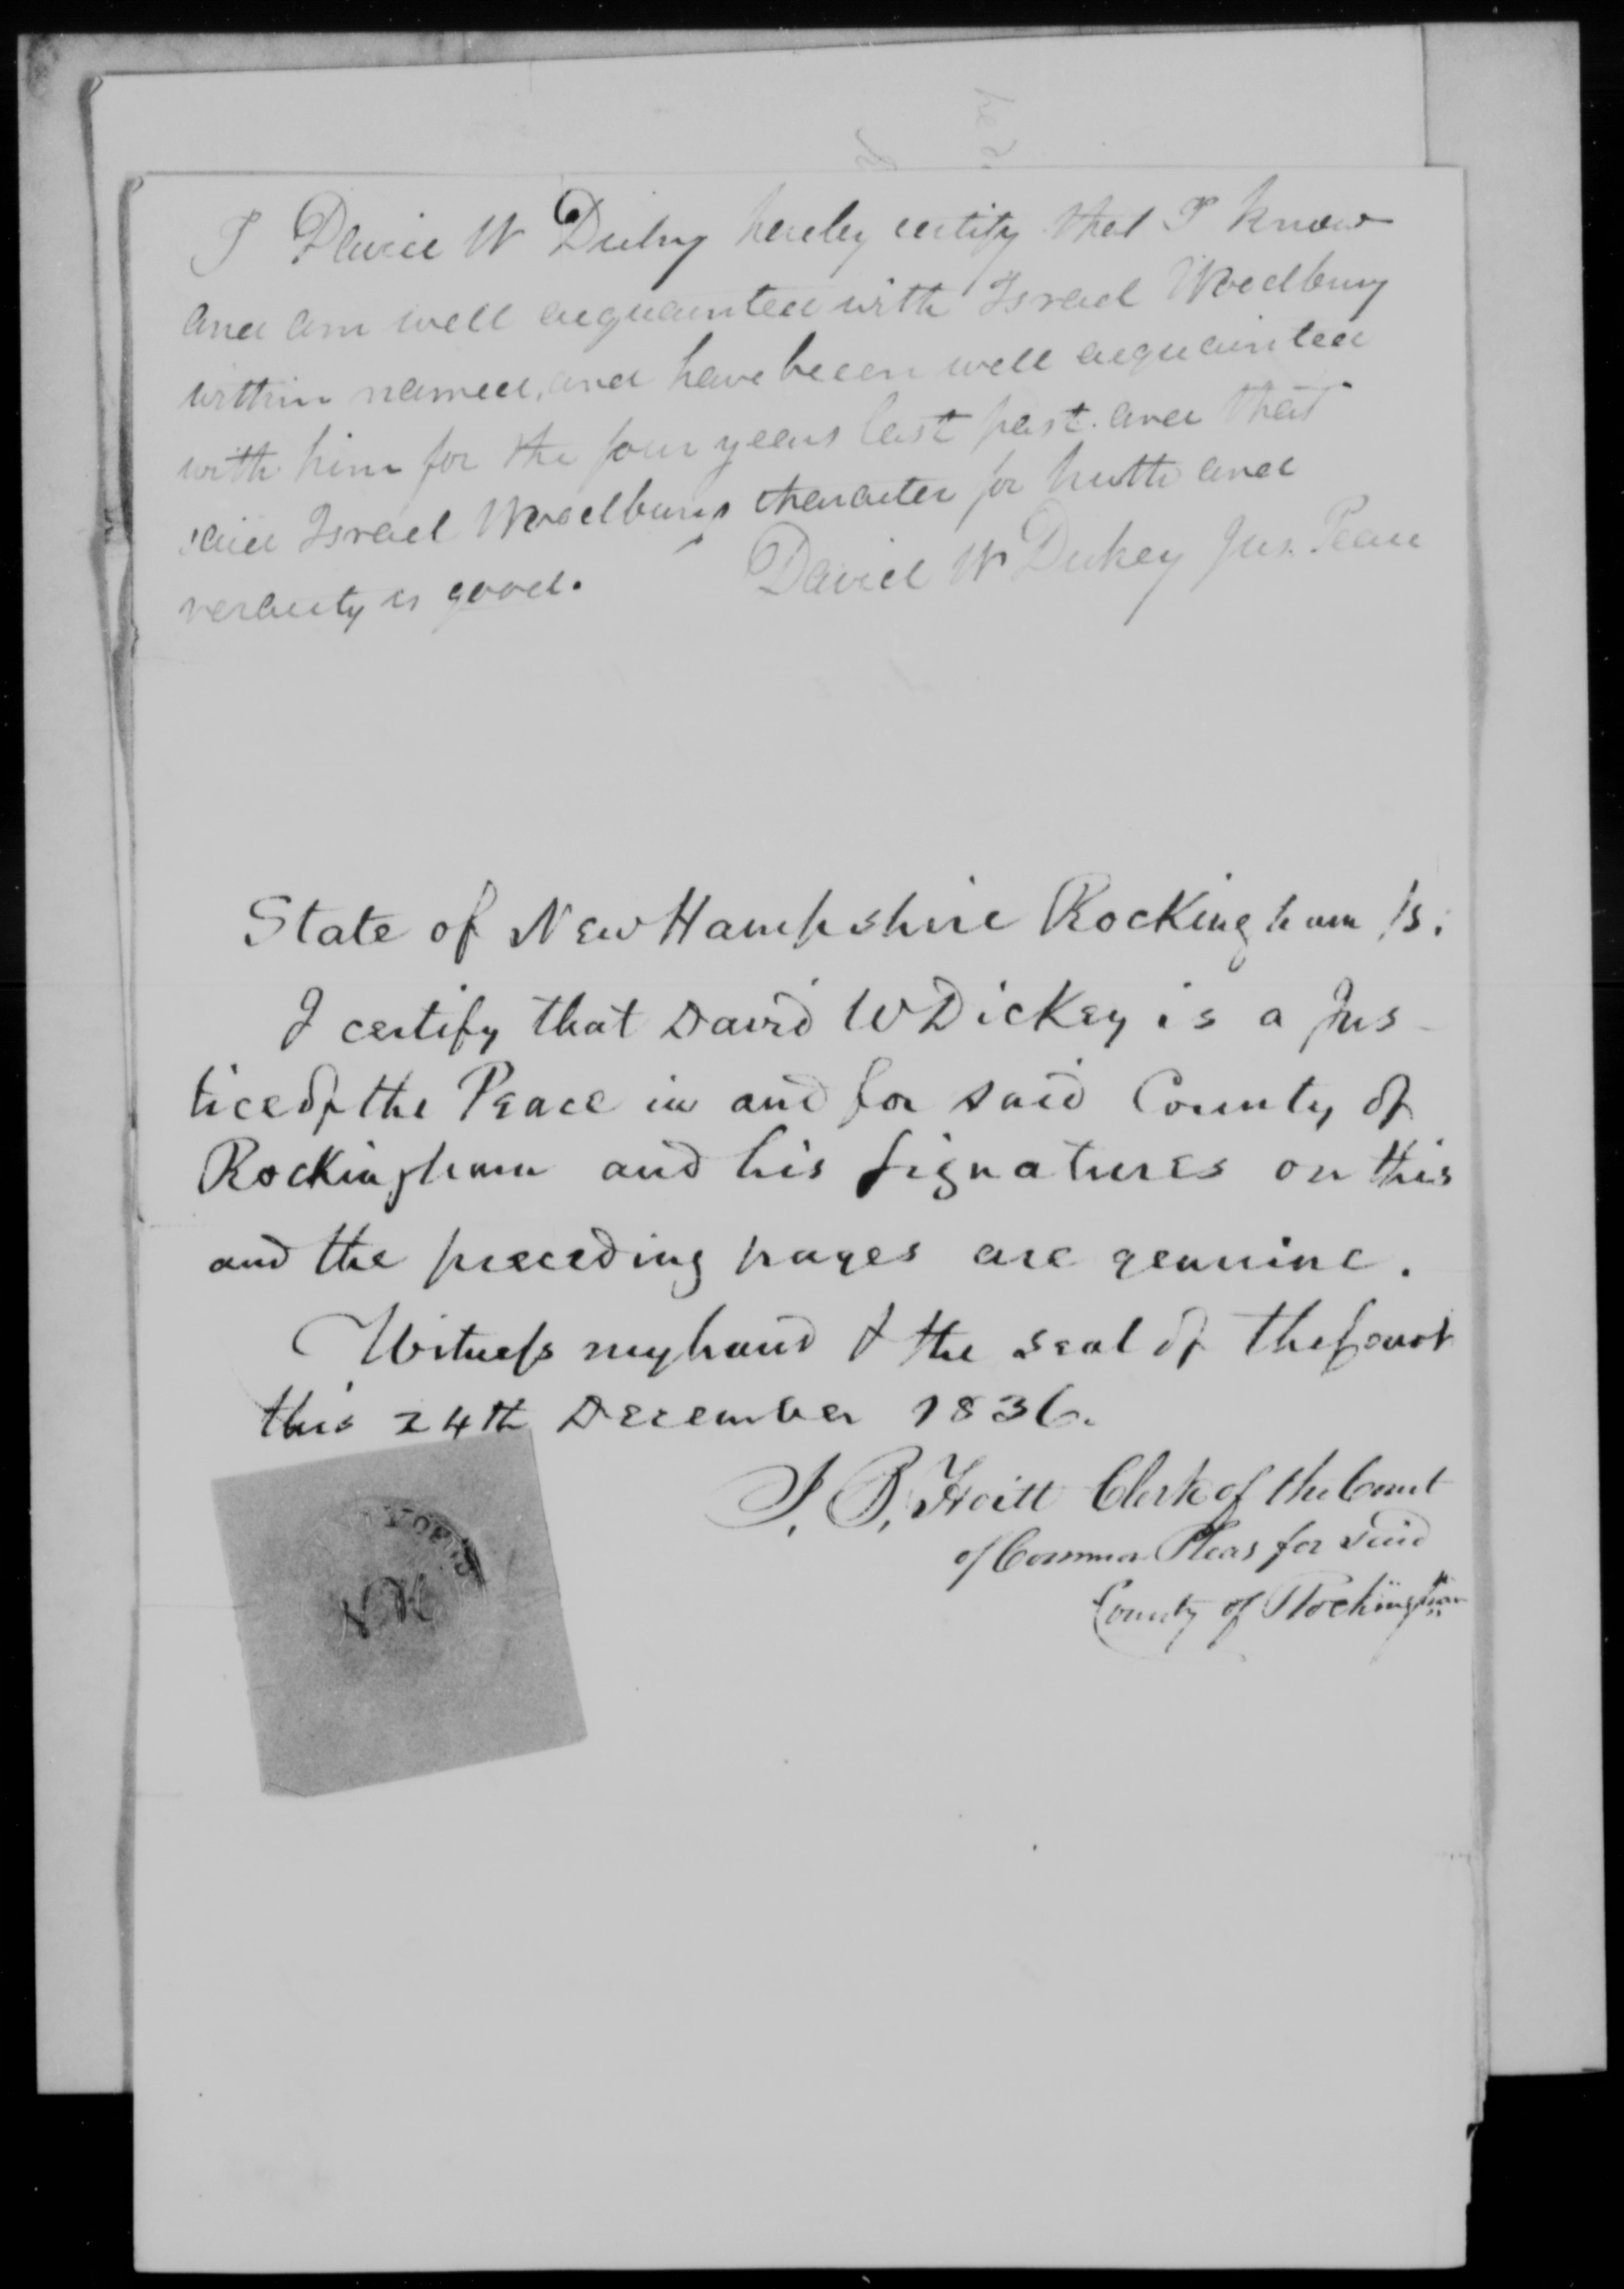 I David W Dickey hereby certify that I know
and am well acquainted with Israel Woodbury
within named, and have been well acquainted
with him for the four years last past. and that
said Israel Woodburys character for truth and
veracity is good. David W Dickey Jus. Peace
State of New Hampshire Rockingham ss.
I certify that David W Dickey is a Jus
tice of the Peace in and for said County of
Rockingham and his signatures on this
and the preceding pages are genuine.
Witness my hand & the seal of the Court
this 24th December 1836.
N.H.
Clerk of the Court
of Common Pleas for said
County of Rockingham